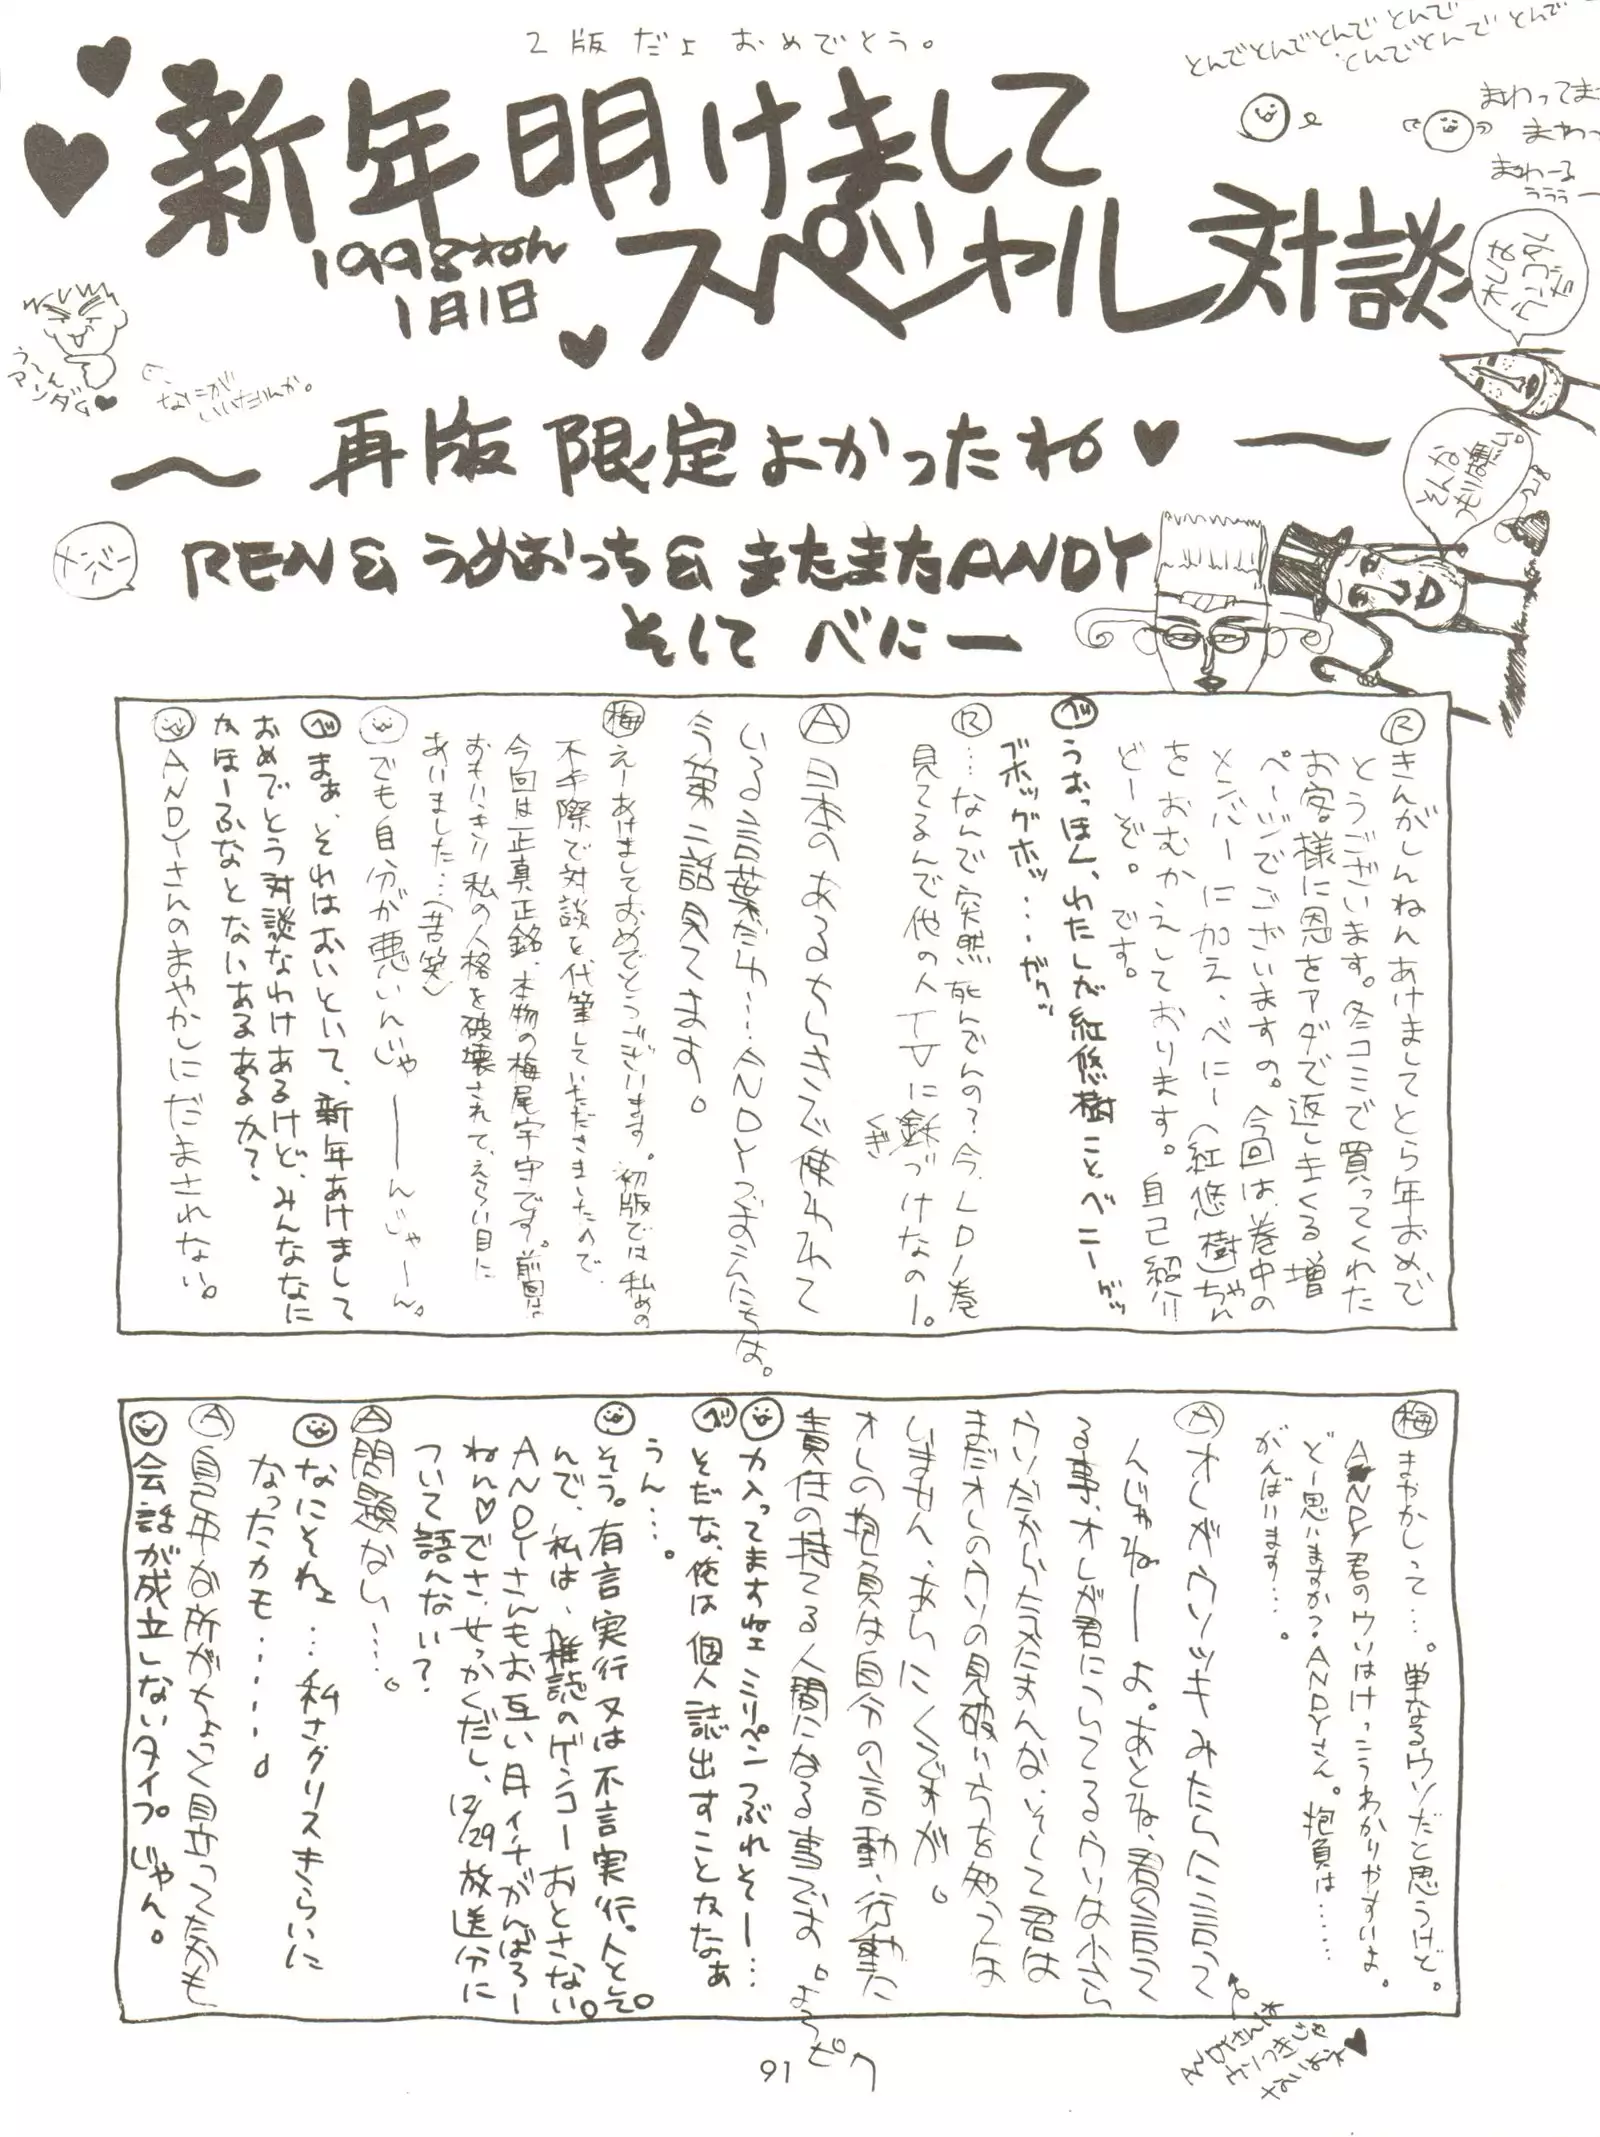 2版だよ おめでとう。
とんでとんでとんでとんで
とんでとんでとんで
まわってまわ
まわっ
まわーる
うううー
新年明けまして
スペシャル対談
1998ねん
1月1日
うーん
アンダム♥
なにが
いいだんか。
〜再版限定よかったね♥〜
メンバー
REN&うめおっち&またまたANDY
そして べにー
そんな
つもりは無い。
Ⓡきんがしんねんあけましてとら年おめで
とうございます。冬コミで買ってくれた
お客様に恩をアダで返しまくる、増
ページでございますの。今回は、巻中の
メンバーに加え、べにー(紅悠樹)ちゃん
をおむかえしております。自己紹介
どーぞ。です。
べうおっほん、わたしが紅悠樹ことべニーゲッ
ブホッグホッ...ガクッ
Ⓡ...なんで突然死んでんの?今、LD1巻
見てるんで他の人TVに釘づけなのー。
くぎ
Ⓐ日本のあるちらきで使われて
いる言葉だわ...ANDYでおうんにちは。
今第二話見てます。
梅えーあけましておめでとうございます。初版では私めの
不手際で対談を、代筆していただきましたので、
今回は正真正銘、本物の梅尾宇宇です。前回は
おもいっきり私の人格を破壊されて、えらい目に
あいました...(苦笑)
でも自分が悪いんじゃーーんじゃーん。
べまぁ、それはおいといて、新年あけまして
おめでとう対談なわけあるけど、みんななに
かほーふなとないあるあるか?
ANDYさんのまやかしにだまされない。
梅まやかしって...。単なるウソだと思うけど。
ANDY君のウソはけっこうわかりやすいよ。
どー思いますか?ANDYさん。抱負は......
がんばります...。
Ⓐオレがウソツキみたいに言って
んじゃねーーよ。あとね、君の言って
る事、オレが君についてるウソは少ら
ウソだからたまんな、そして君は
まだオレのウソの見破り方を知っては
いません、あらにくですが。
オレの抱負は自分の言動、行動に
責任の持てる人間になる事です。よろピク
力入ってますねェミリペンつぶれそー...
べそだな、俺は個人誌出すことかなぁ
うん...。
そう。有言実行又は不言実行。人として。
んで、私は、雑誌のゲンコーおとさない。
ANDYさんもお互い月イチがんばろー
ねん♡でさ、せっかくだし、12/29放送分に
ついて語んない?
Ⓐ問題ない....。
なにそれェ...私さグリスきらいに
なったカモ......。
Ⓐ自己中な所がちょっと目立ってたかも
会話が成立しないタイプじゃん。
ANDYさんは
ウソつきじゃ
ないよね♥
91